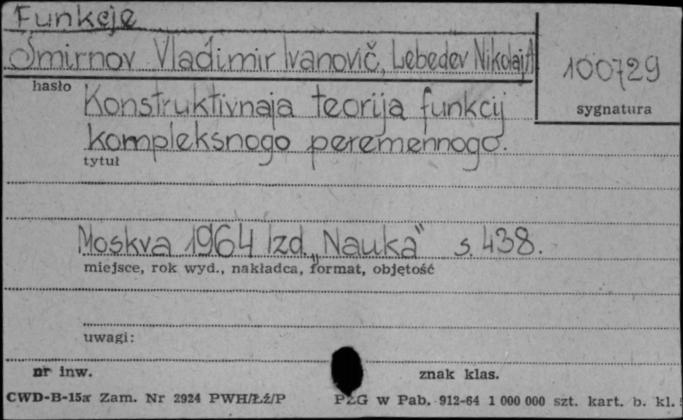 Funkcje
Smirnov Vladimir Ivanovič, Lebedev Nikolaj A
100729
hasło
sygnatura
Konstruktivnaja teorija funkcij
kompleksnogo peremennogo.
tytuł
Moskva 1964 Izd. „Nauka" s. 438.
miejsce, rok wyd., nakładca, format, objętość
uwagi:
nr inw.
znak klas.
CWD-B-15a Zam. Nr 2924 PWH/Łź/P PZG w Pab. 912-64 1 000 000 szt. kart. b. kl.